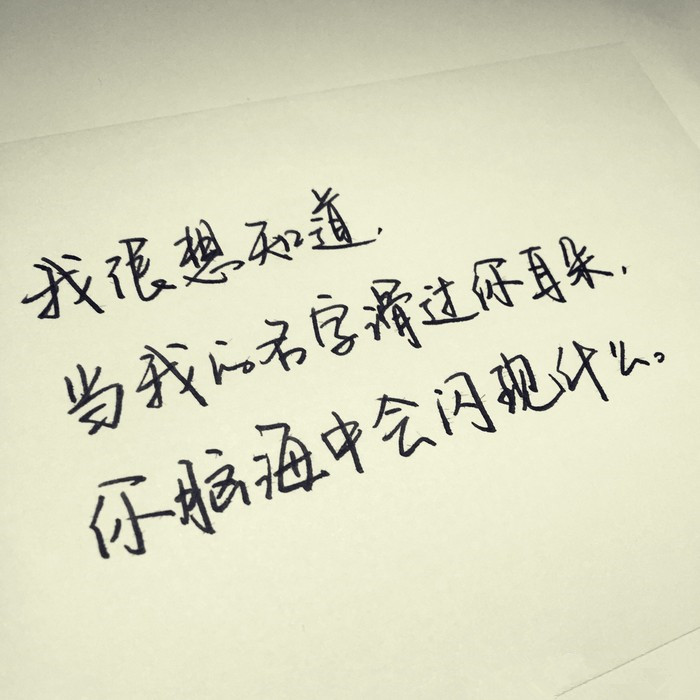 我很想知道.
当我的名字滑过你耳朵.
你脑海中会闪现什么。